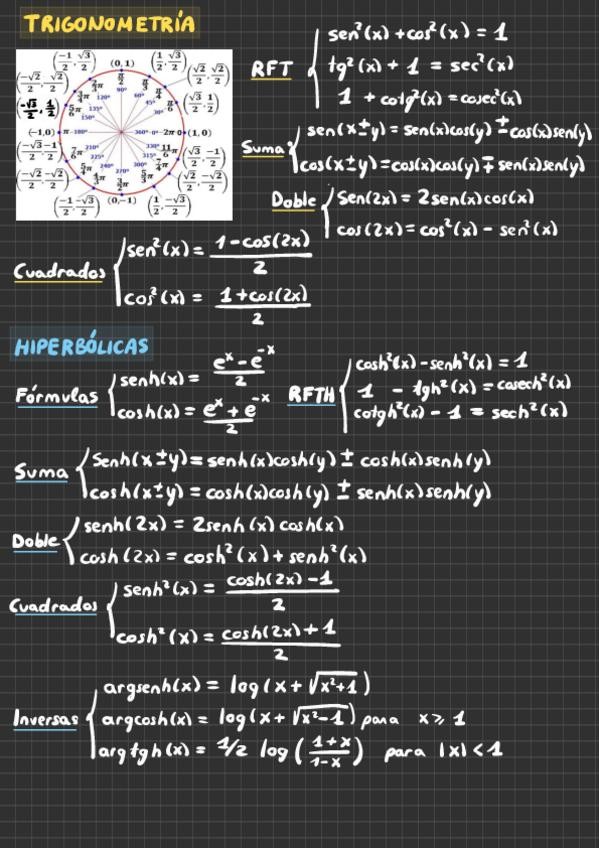 TRIGONOMETRÍA
(-1/2, √3/2) (0,1) (1/2, √3/2)
(-√2/2, √2/2) π/2 (√2/2, √2/2)
2π/3 π/3
3π/4 120° 90° 60° π/4
(-√3/2, 1/2) 5π/6 135° 45° π/6 (√3/2, 1/2)
150° 30°
(-1,0) π 180° 360° 0 2π (1,0)
(-√3/2, -1/2) 7π/6 210° 330° 11π/6 (√3/2, -1/2)
225° 315°
5π/4 240° 270° 300°
(-√2/2, -√2/2) (√2/2, -√2/2)
(-1/2, -√3/2) (0,-1) (1/2, -√3/2)
RFT
sen²(x) + cos²(x) = 1
tg²(x) + 1 = sec²(x)
1 + cotg²(x) = cosec²(x)
Suma
sen(x±y) = sen(x)cos(y) ± cos(x)sen(y)
cos(x±y) = cos(x)cos(y) ∓ sen(x)sen(y)
Doble
sen(2x) = 2sen(x)cos(x)
cos(2x) = cos²(x) - sen²(x)
Cuadrados
sen²(x) = (1-cos(2x))/2
cos²(x) = (1+cos(2x))/2
HIPERBÓLICAS
Fórmulas
senh(x) = (eˣ - e⁻ˣ)/2
cosh(x) = (eˣ + e⁻ˣ)/2
RFTH
cosh²(x) - senh²(x) = 1
1 - tgh²(x) = cosech²(x)
cotgh²(x) - 1 = sech²(x)
Suma
senh(x±y) = senh(x)cosh(y) ± cosh(x)senh(y)
cosh(x±y) = cosh(x)cosh(y) ± senh(x)senh(y)
Doble
senh(2x) = 2senh(x)cosh(x)
cosh(2x) = cosh²(x) + senh²(x)
Cuadrados
senh²(x) = (cosh(2x) - 1)/2
cosh²(x) = (cosh(2x) + 1)/2
Inversas
argsenh(x) = log(x + √(x²+1))
argcosh(x) = log(x + √(x²-1)) para x ≥ 1
argtgh(x) = 1/2 log((1+x)/(1-x)) para |x| < 1